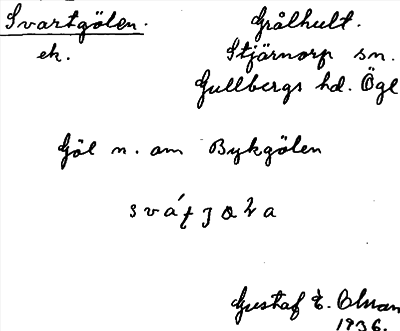 Svartgölen.
ek.
Grålhult.
Stjärnorp sn.
Gullbergs hd. Ögl
Göl n. om Bykgölen
Gustaf E.
1936.